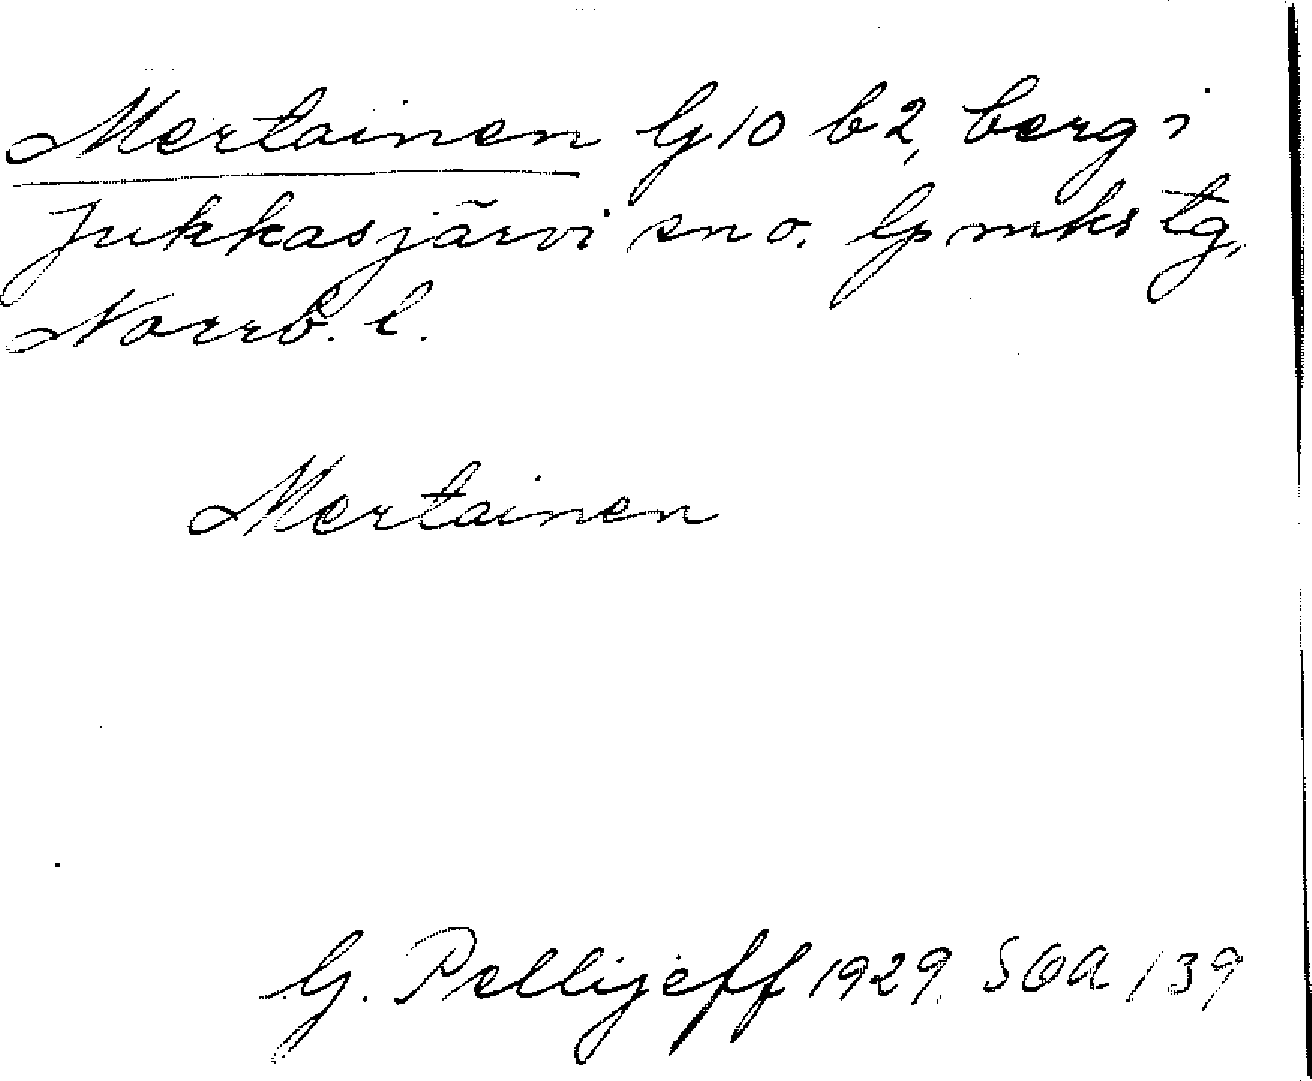 Mertainen G 10 b2, berg i
Jukkasjärvi sn o. lpmks tg,
Norrb. l.
Mertainen
G. Pellijeff 1929. SOA /39